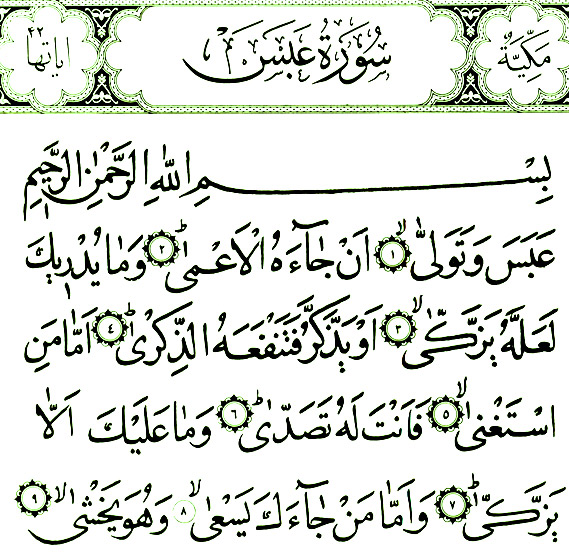 مَكِّيَّةٌ سُورَةُ عَبَسَ اٰيَاتُهَا ٤٢
بِسْمِ اللّٰهِ الرَّحْمٰنِ الرَّحِيْمِ
عَبَسَ وَتَوَلّٰىۙ ﴿١﴾ اَنْ جَآءَهُ الْاَعْمٰىؕ ﴿٢﴾ وَمَا يُدْرِيْكَ
لَعَلَّهٗ يَزَّكّٰىۙ ﴿٣﴾ اَوْ يَذَّكَّرُ فَتَنْفَعَهُ الذِّكْرٰىؕ ﴿٤﴾ اَمَّا مَنِ
اسْتَغْنٰىۙ ﴿٥﴾ فَاَنْتَ لَهٗ تَصَدّٰىؕ ﴿٦﴾ وَمَا عَلَيْكَ اَلَّا
يَزَّكّٰىؕ ﴿٧﴾ وَاَمَّا مَنْ جَآءَكَ يَسْعٰىۙ ﴿٨﴾ وَهُوَ يَخْشٰىۙ ﴿٩﴾